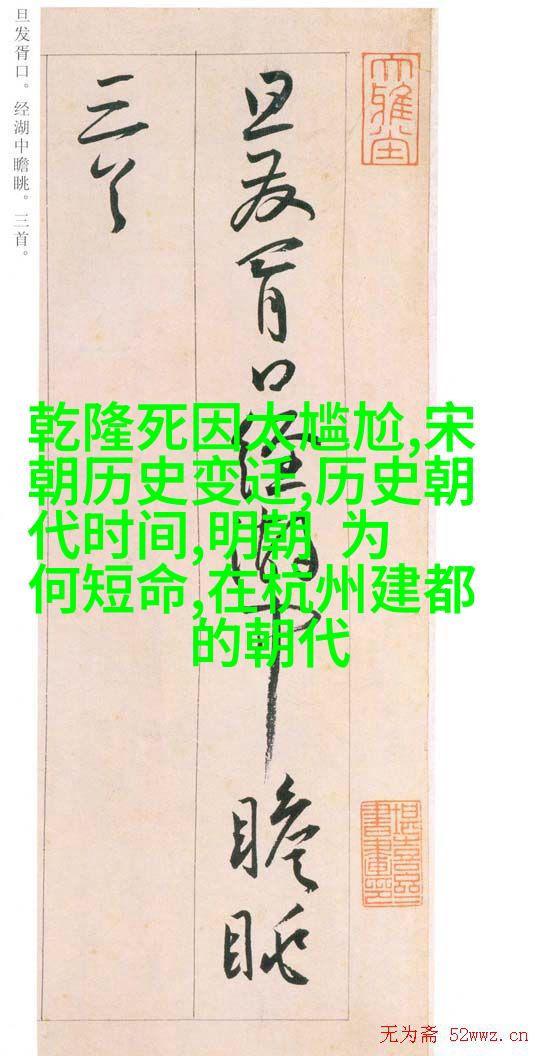 旦发胥口。经湖中瞻眺。三首。
旦發胥口經湖中瞻眺
三首
乾隆死因太尴尬,宋
朝历史变迁,历史朝
代时间,明朝 为
何短命,在杭州建都
的朝代
无为斋 52wwz.cn